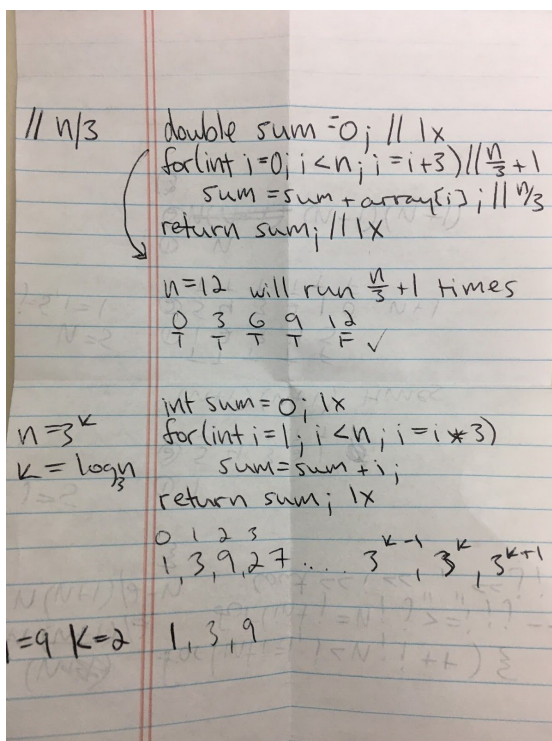 // n/3 double sum = 0; // 1x
for(int i=0; i<n; i = i+3) // n/3 + 1
sum = sum + array[i]; // n/3
return sum; // 1x
n=12 will run n/3 + 1 times
0 3 6 9 12
T T T T F ✓
int sum = 0; 1x
n = 3^k for(int i=1; i<n; i = i*3)
k = log₃n sum = sum + i;
return sum; 1x
0 1 2 3
1, 3, 9, 27 .... 3^(k-1), 3^k, 3^(k+1)
=9 k=2 1, 3, 9